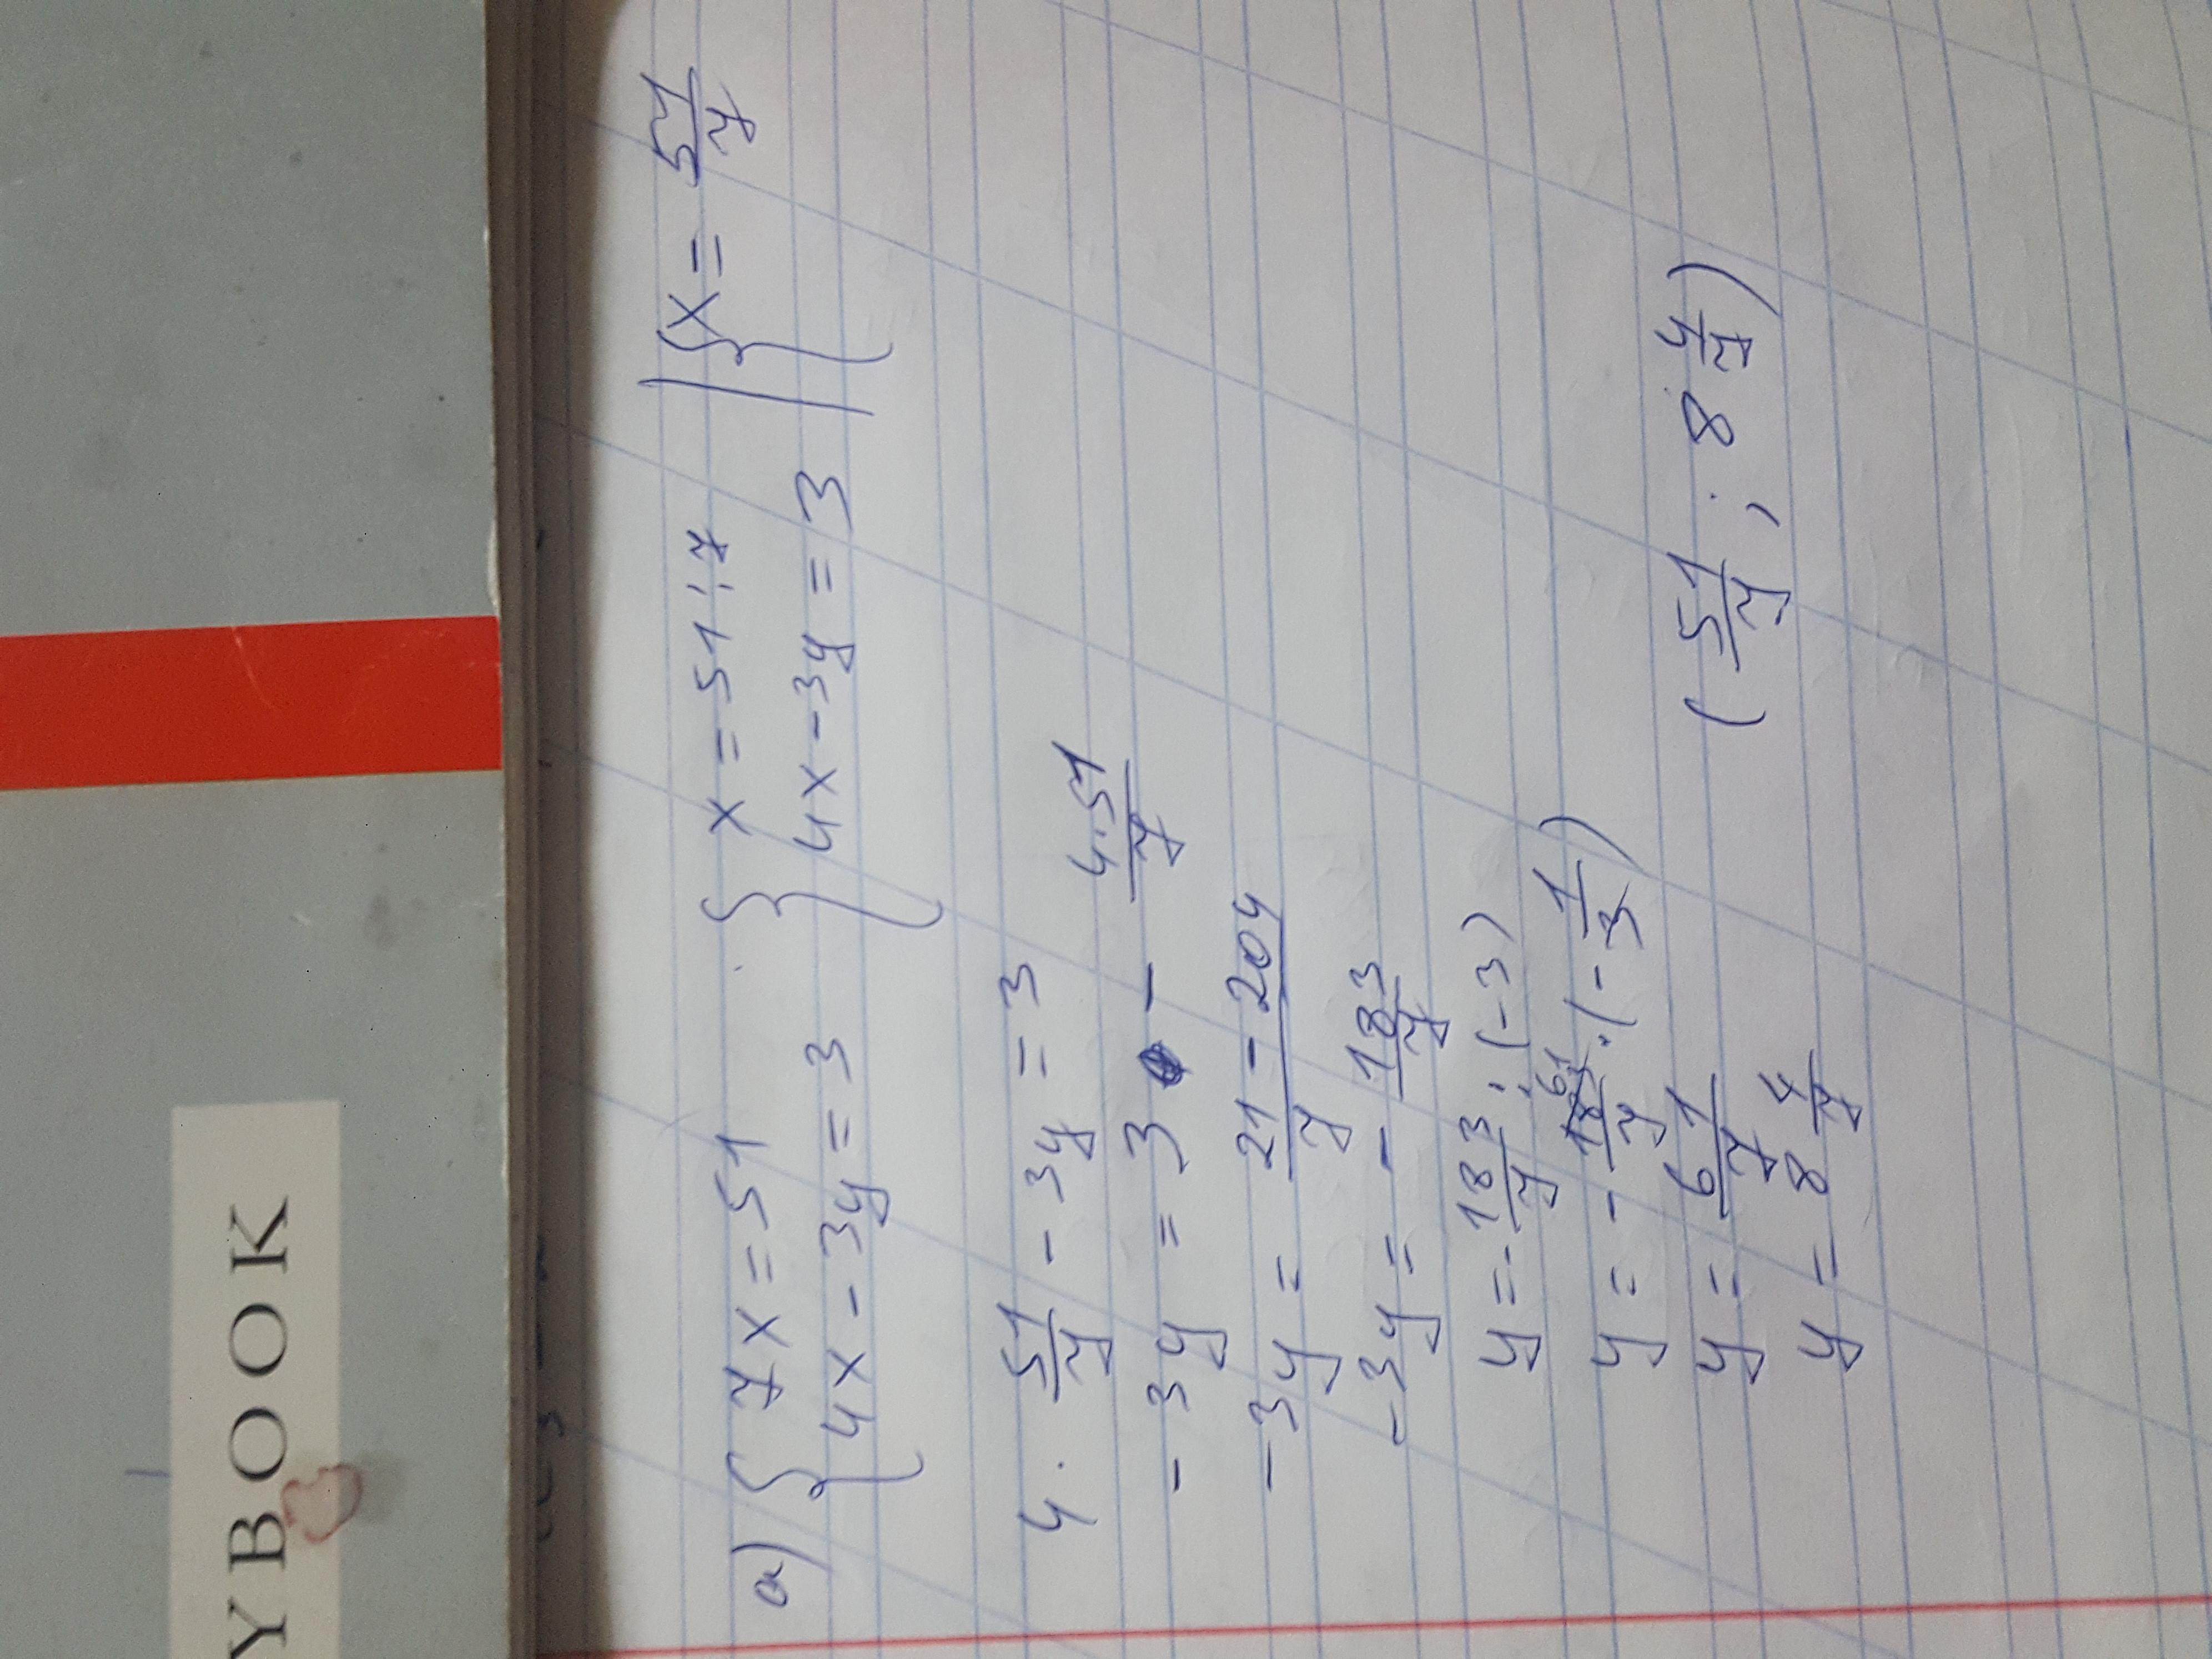 YBOOK
a) { 7x = 51 { x = 51 : 7 | { x = 51/7
4x - 3y = 3 4x - 3y = 3
4 · 51/7 - 3y = 3
- 3y = 3 - 4·51/7
- 3y = 21 - 204/7
- 3y = - 183/7
y = - 183/7 : (-3)
y = - 183/7 · (- 1/3) 61
y = 61/7
y = 8 4/7
( 51/7 ; 8 4/7 )